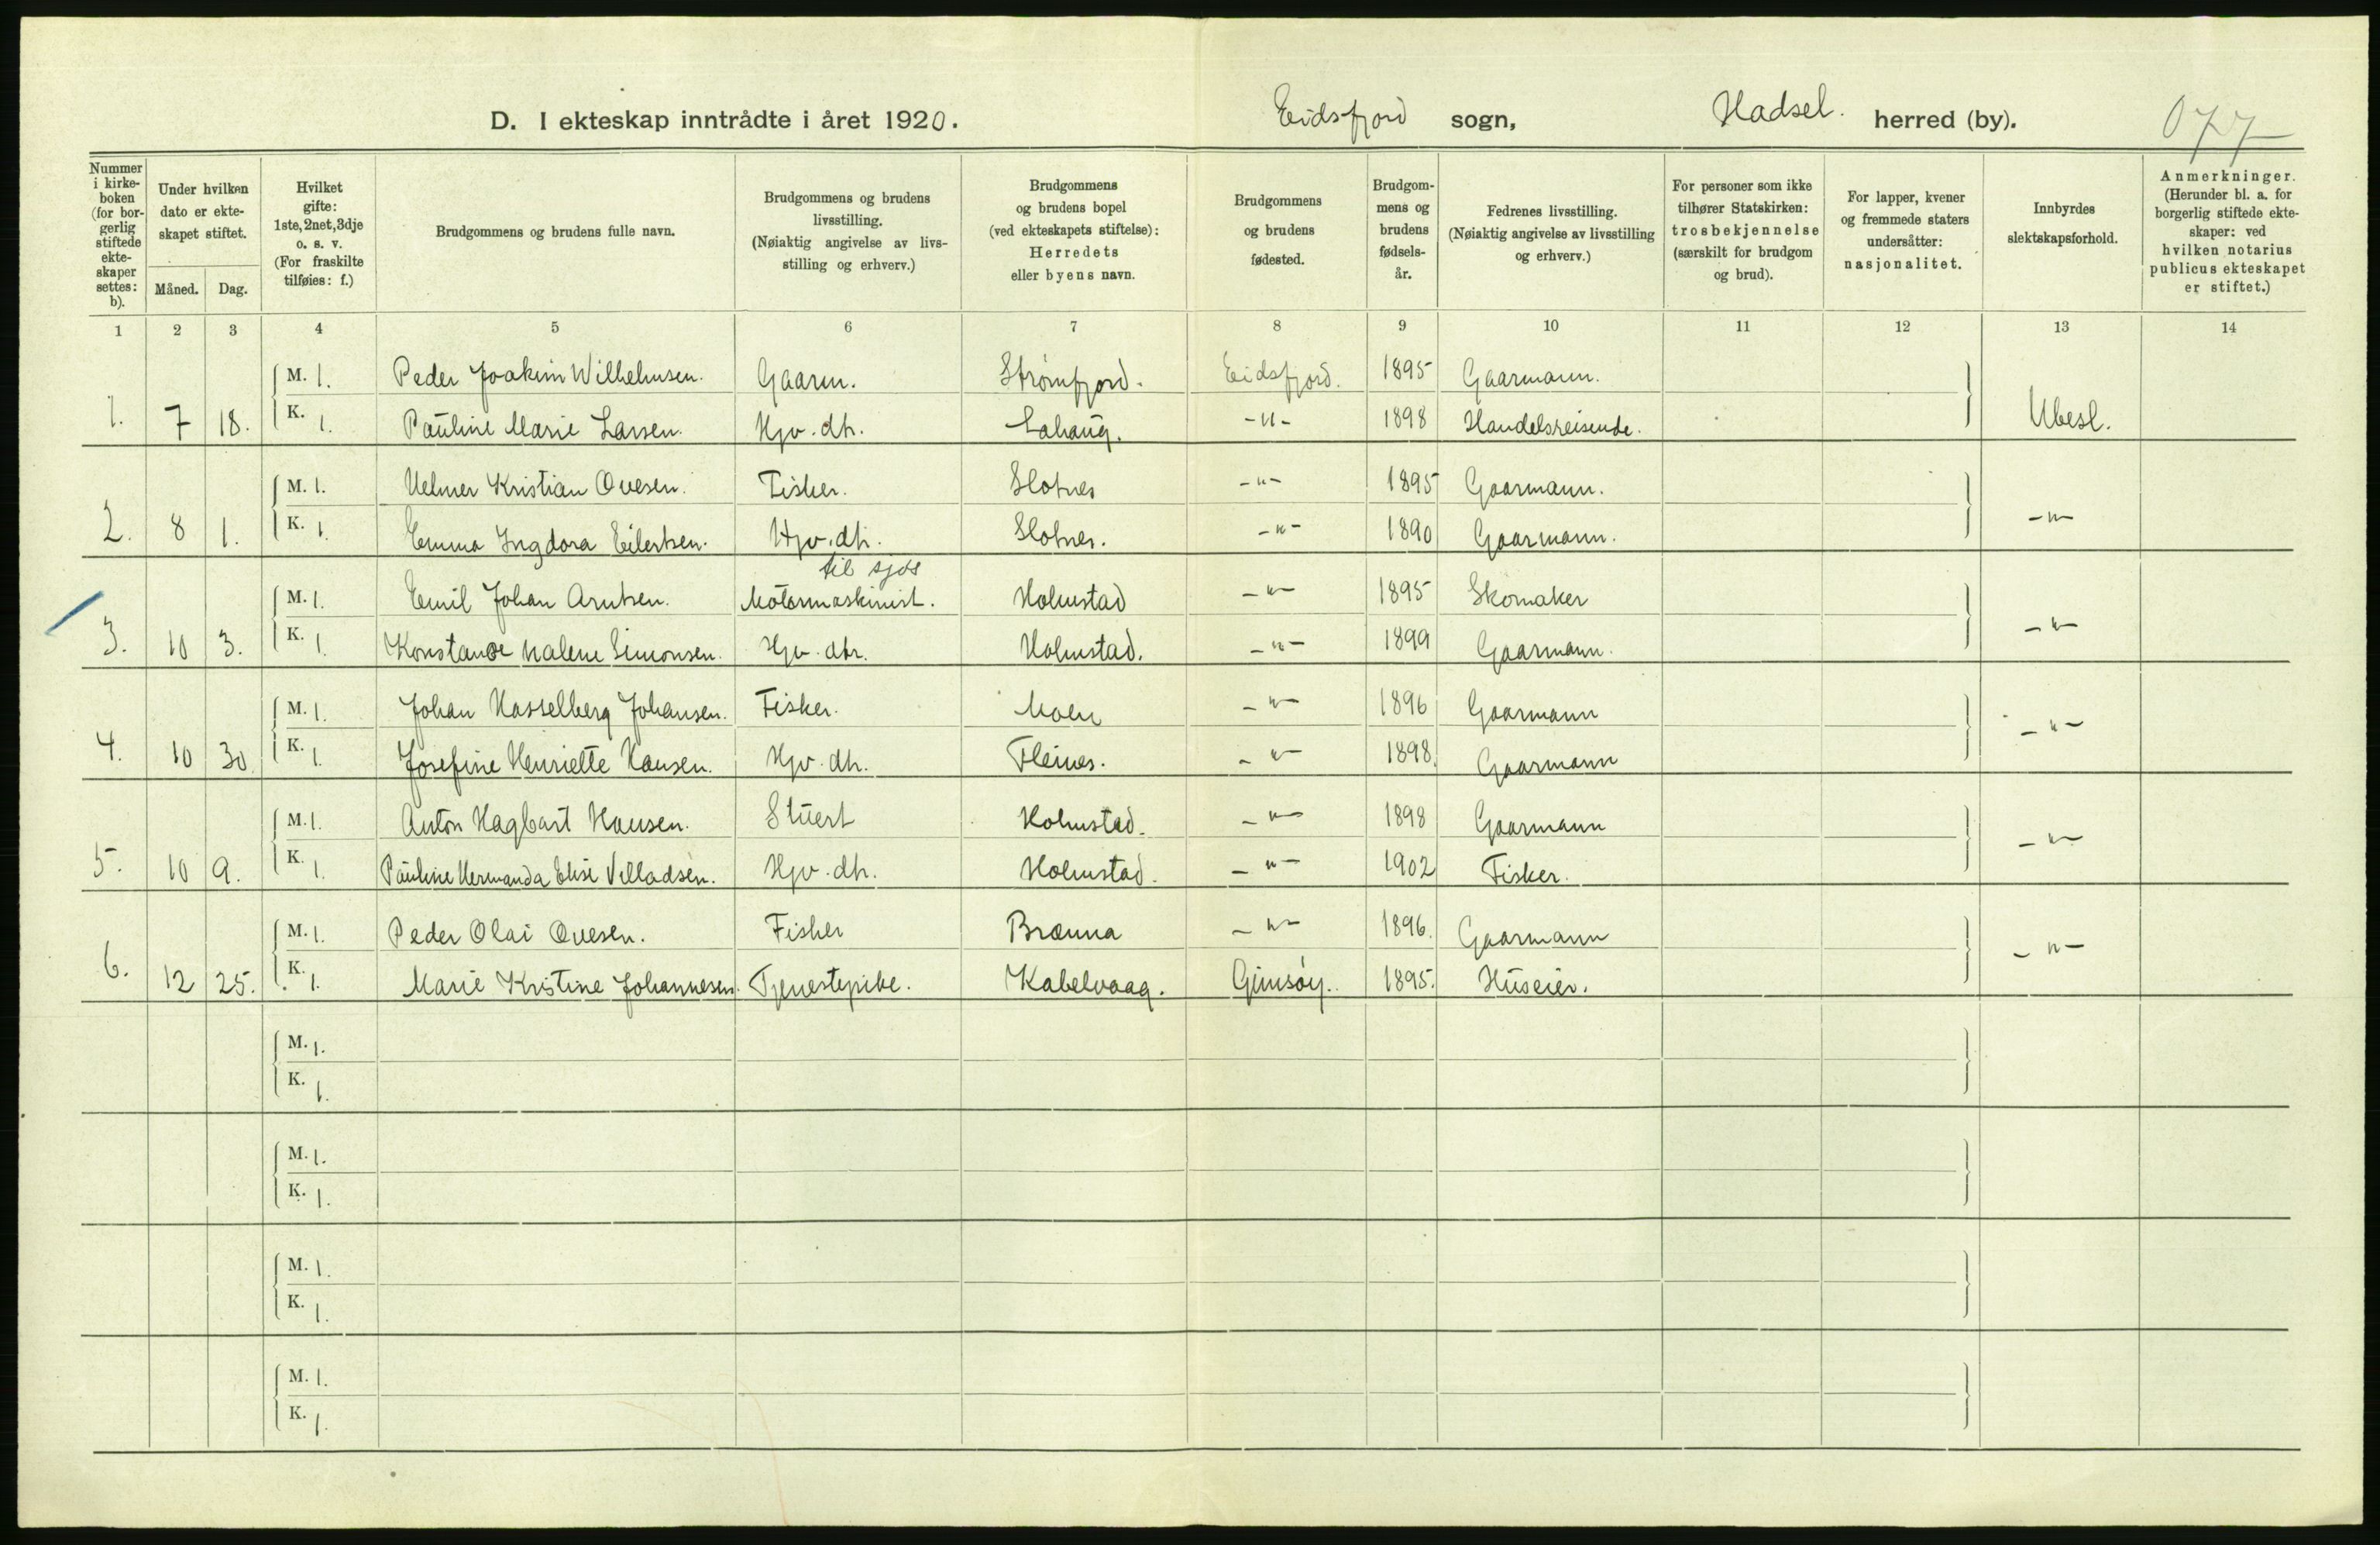 D. I ekteskap inntrådte i året 1920. Eidsfjord sogn, Hadsel. herred (by). 077
Nummer i kirke-boken (for bor-gerlig stiftede ekte-skaper settes: b).
Under hvilken dato er ekte-skapet stiftet.
Måned. Dag.
Hvilket gifte: 1ste, 2net, 3dje o. s. v. (For fraskilte tilføies: f.)
Brudgommens og brudens fulle navn.
Brudgommens og brudens livsstilling. (Nøiaktig angivelse av livs-stilling og erhverv.)
Brudgommens og brudens bopel (ved ekteskapets stiftelse): Herredets eller byens navn.
Brudgommens og brudens fødested.
Brudgom-mens og brudens fødsels-år.
Fedrenes livsstilling. (Nøiaktig angivelse av livsstilling og erhverv.)
For personer som ikke tilhører Statskirken: trosbekjennelse (særskilt for brudgom og brud).
For lapper, kvener og fremmede staters undersåtter: nasjonalitet.
Innbyrdes slektskapsforhold.
Anmerkninger. (Herunder bl. a. for borgerlig stiftede ekte-skaper: ved hvilken notarius publicus ekteskapet er stiftet.)
1 2 3 4 5 6 7 8 9 10 11 12 13 14
M. 1. Peder Joakim Wilhelmsen. Gaarm. Strømfjord. Eidsfjord. 1895 Gaarmann.
1. 7 18. K. 1. Pauline Marie Larsen. Hjv. dtr. -"- 1898 Handelsreisende. Ubesl.
M. 1. Helmer Kristian Ovesen. Fisker. Slotnes -"- 1895 Gaarmann.
2. 8 1. K. 1. Emma Ingdora Eilertsen. Hjv. dtr. Slotnes. -"- 1890 Gaarmann. -"-
til sjøs
M. 1. Emil Johan Arntsen. Motormaskinist. Holmstad -"- 1895 Skomaker
3. 10 3. K. 1. Konstance Malene Simonsen. Hjv. dtr. Holmstad. -"- 1899 Gaarmann. -"-
M. 1. Johan Hasselberg Johansen. Fisker. Moen -"- 1896 Gaarmann
4. 10 30. K. 1. Josefine Henriette Hansen. Hjv. dtr. Fleines. -"- 1898. Gaarmann -"-
M. 1. Anton Hagbart Hansen. Stuert Holmstad. -"- 1898 Gaarmann
5. 10 9. K. 1. Pauline Hermanda Elise Villadsen. Hjv. dtr. Holmstad. -"- 1902 Fisker. -"-
M. 1. Peder Olai Ovesen. Fisker Brænna -"- 1896. Gaarmann
6. 12 25. K. 1. Marie Kristine Johannesen. Tjenestepike. Kabelvaag. Gimsøy. 1895. Huseier. -"-
M. 1.
K. 1.
M. 1.
K. 1.
M. 1.
K. 1.
M. 1.
K. 1.